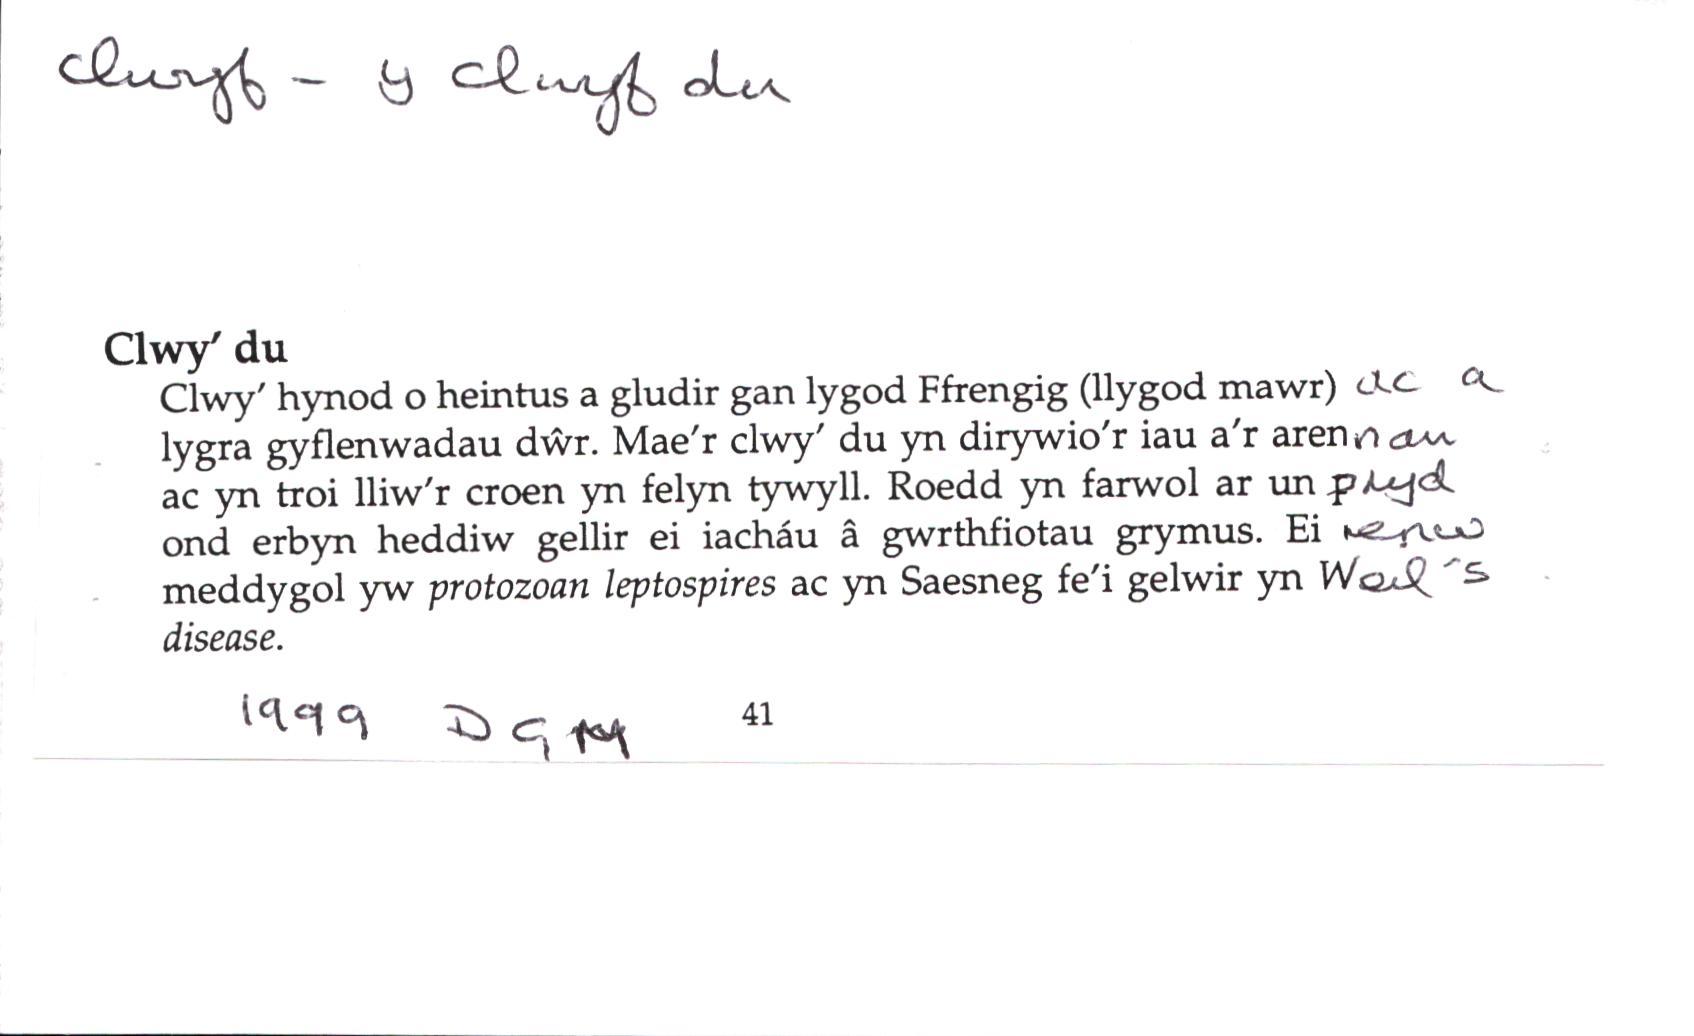 clwyf – y clwyf du
Clwy' du
Clwy' hynod o heintus a gludir gan lygod Ffrengig (llygod mawr) ac a
lygra gyflenwadau dŵr. Mae'r clwy' du yn dirywio'r iau a'r arennau
ac yn troi lliw'r croen yn felyn tywyll. Roedd yn farwol ar un pryd
ond erbyn heddiw gellir ei iacháu â gwrthfiotau grymus. Ei enw
meddygol yw protozoan leptospires ac yn Saesneg fe'i gelwir yn Weil's
disease.
1999 DGM 41